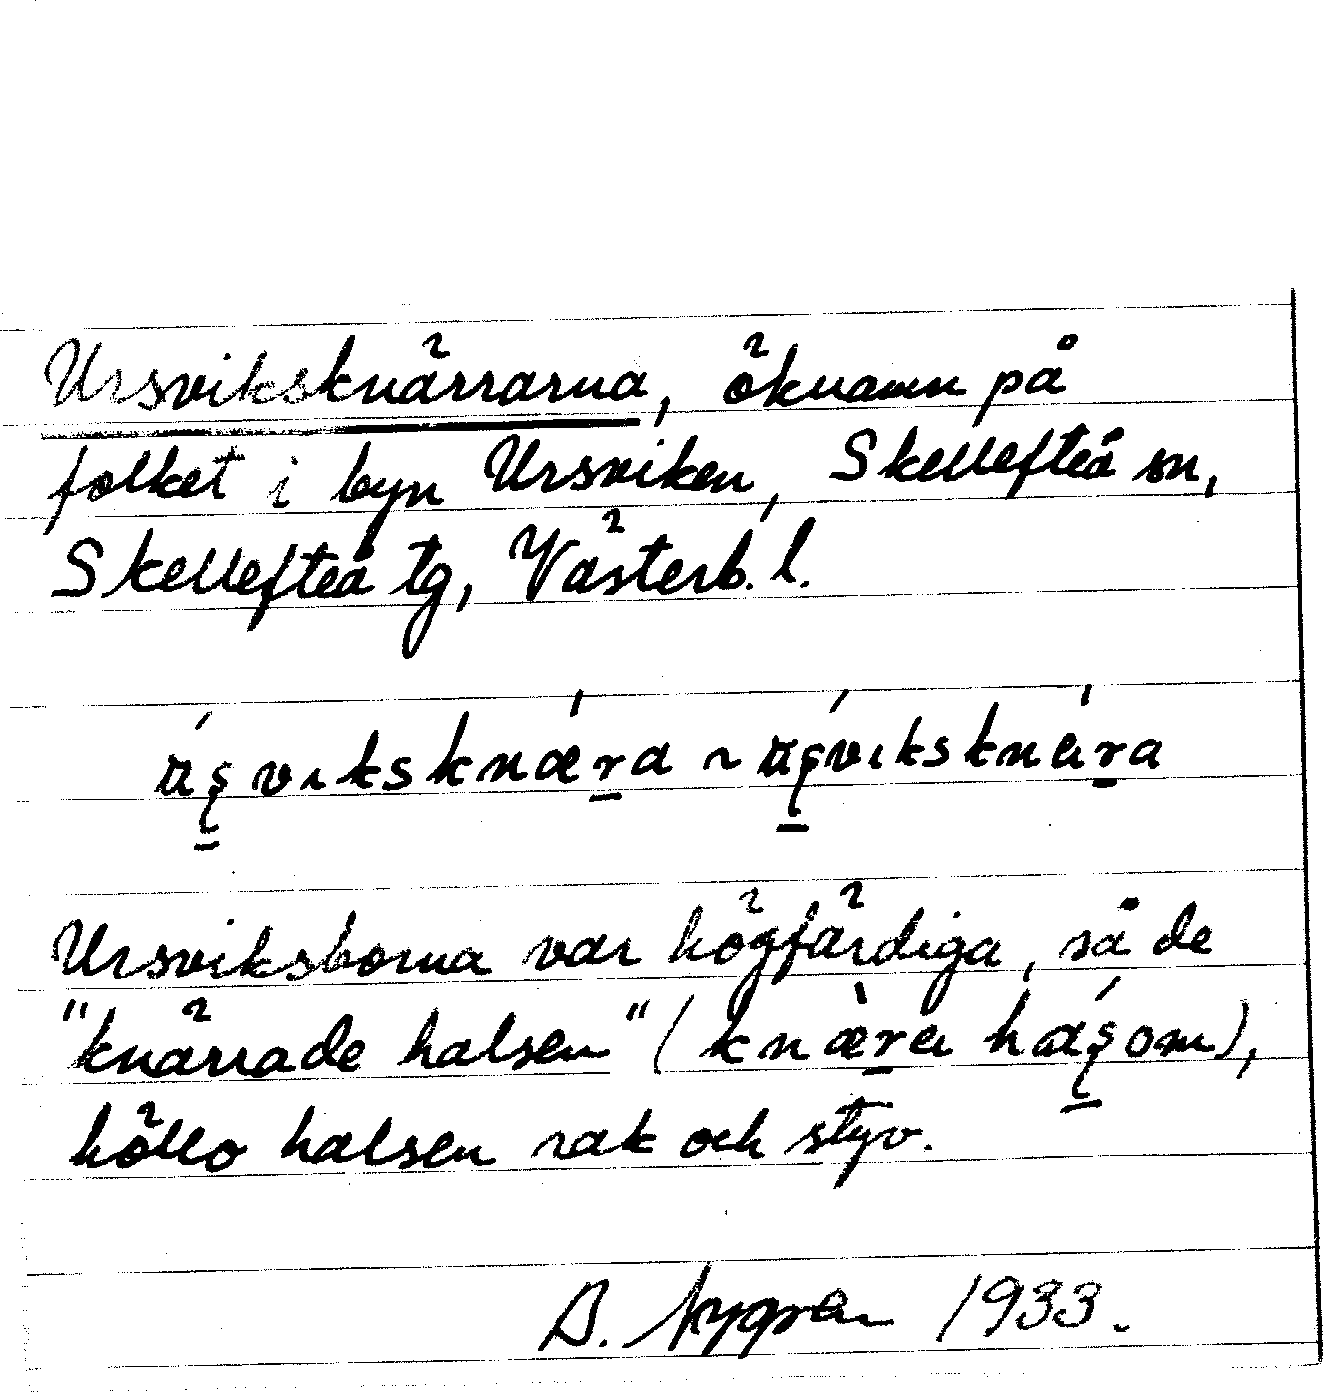 Ursviksknärrarna, öknamn på
folket i byn Ursviken, Skellefteå sn,
Skellefteå tg, Västerb. l.
Ursviksborna var högfärdiga, så de
"knärrade halsen" (
höllo halsen rak och styv.
B. Nygren 1933.